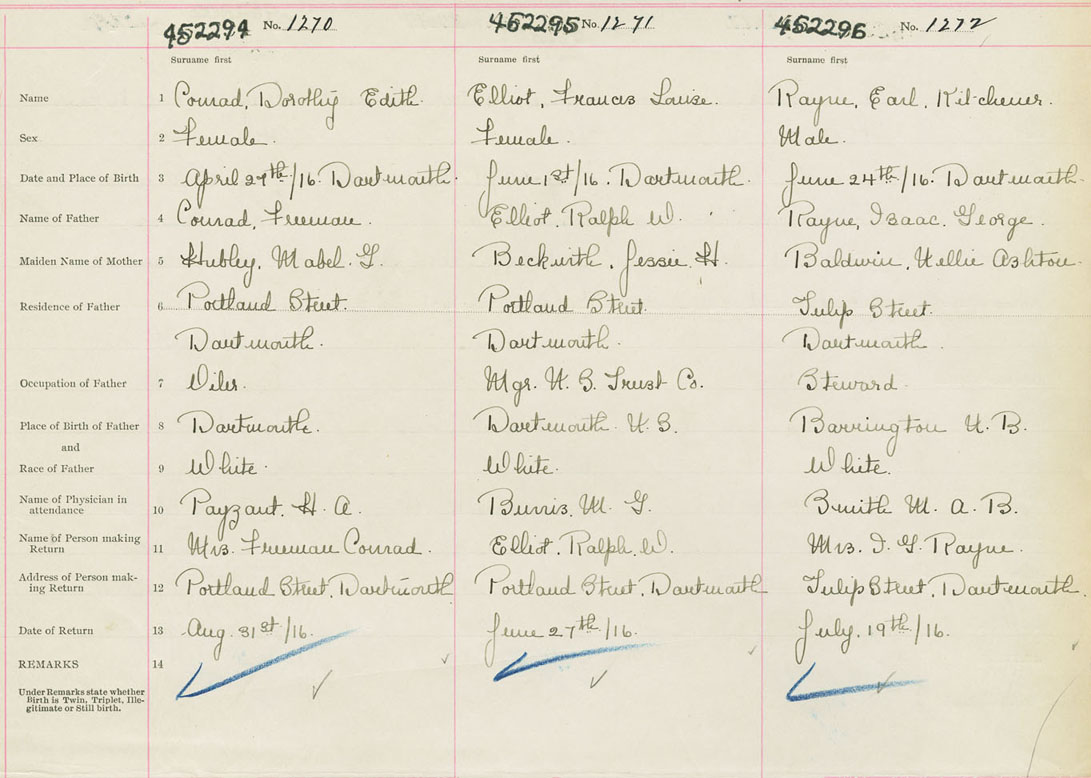 452294 No. 1270 452295 No. 1271 452296 No. 1272
Surname first Surname first Surname first
Name 1 Conrad, Dorothy Edith. Elliot, Francis Louise. Rayne, Earl, Kitchener.
Sex 2 Female. Female. Male.
Date and Place of Birth 3 April 27th/16. Dartmouth. June 1st/16. Dartmouth. June 24th/16. Dartmouth.
Name of Father 4 Conrad, Freeman. Elliot, Ralph W. Rayne, Isaac, George.
Maiden Name of Mother 5 Hubley, Mabel. G. Beckwith, Jessie. H. Baldwin, Nellie Ashton.
Residence of Father 6 Portland Street. Portland Street. Tulip Street.
Dartmouth. Dartmouth. Dartmouth.
Occupation of Father 7 Oiler. Mgr. N. S. Trust Co. Steward.
Place of Birth of Father 8 Dartmouth. Dartmouth N. S. Barrington N. B.
and
Race of Father 9 White. White. White.
Name of Physician in
attendance 10 Payzant, H. A. Burris, M. G. Smith M. A. B.
Name of Person making
Return 11 Mrs. Freeman Conrad. Elliot, Ralph, W. Mrs. I. G. Rayne.
Address of Person mak-
ing Return 12 Portland Street, Dartmouth Portland Street, Dartmouth Tulip Street, Dartmouth.
Date of Return 13 Aug. 31st/16. June 27th/16. July, 19th/16.
REMARKS 14
Under Remarks state whether
Birth is Twin, Triplet, Ille-
gitimate or Still birth.